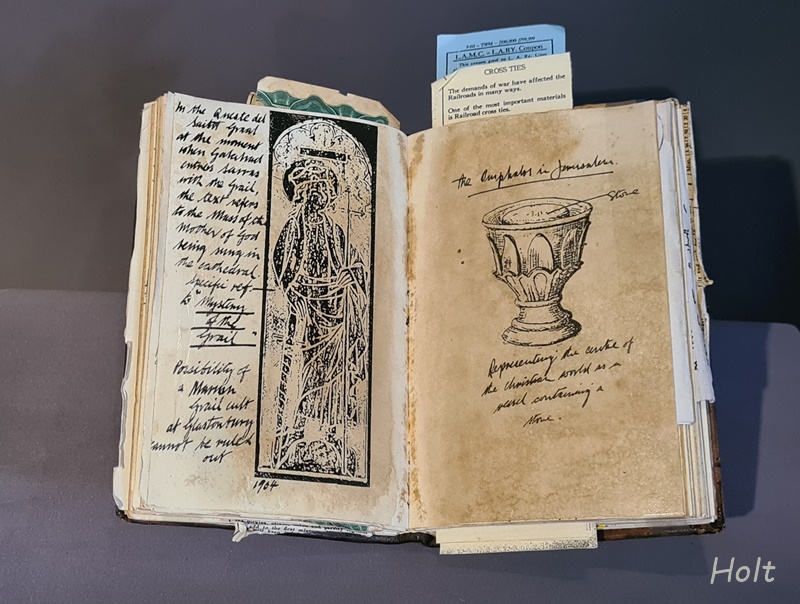 L.A.M.C. - L.A.RY. Coupon
CROSS TIES
The demands of war have affected the
Railroads in many ways.
One of the most important materials
is Railroad cross ties.
In the Queste del
Saint Graal
at the moment
when Galahad
enters Sarras
with the Grail,
the text refers
to the Mass of the
Mother of God
being sung in
the cathedral
specific ref—
to "Mystery
of the
Grail"
Possibility of
a Marian
Grail cult
at Glastonbury
cannot be ruled
out
1904
the Omphalos in Jerusalem.
Stone
Representing the centre of
the christian world as a
vessel containing a
stone.
Holt